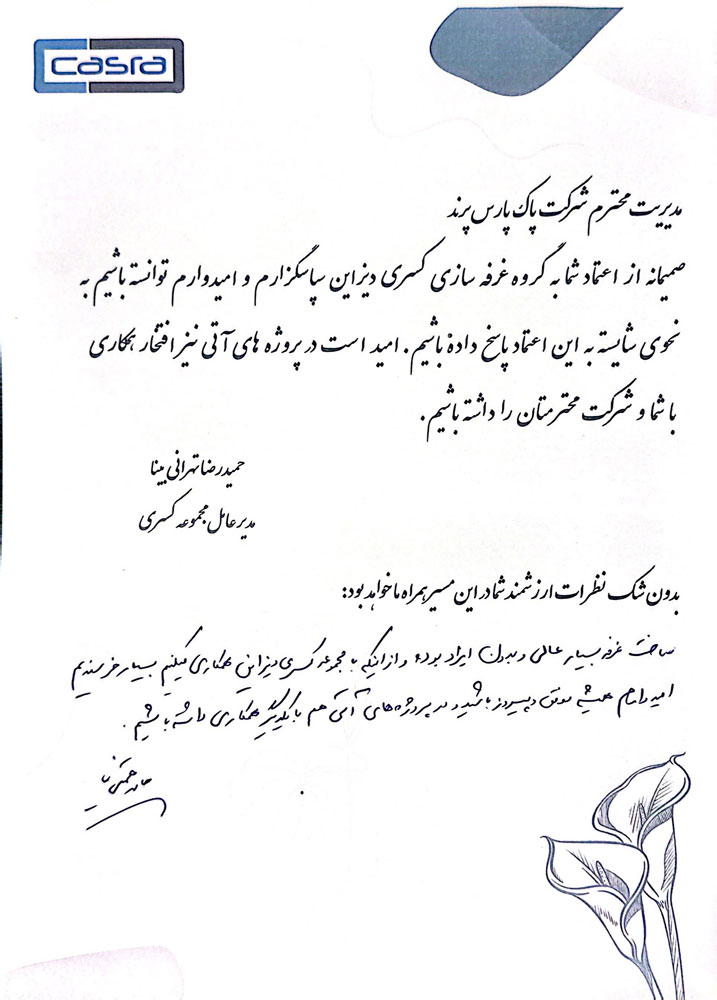 casra
مدیریت محترم شرکت پاک پارس پرند
صمیمانه از اعتماد شما به گروه غرفه سازی کسری دیزاین سپاسگزارم و امیدوارم توانسته باشیم به
نحوی شایسته به این اعتماد پاسخ داده باشیم. امید است در پروژه های آتی نیز افتخار همکاری
با شما و شرکت محترمتان را داشته باشیم.
حمیدرضا تهرانی بینا
مدیرعامل مجموعه کسری
بدون شک نظرات ارزشمند شما در این مسیر همراه ما خواهد بود:
ساخت غرفه بسیار عالی و بدون ایراد بوده و از اینکه با مجموعه کسری دیزاین همکاری میکنیم بسیار خرسندیم
امیدوارم همیشه موفق و پیروز باشید و در پروژه های آتی هم با یکدیگر همکاری داشته باشیم.